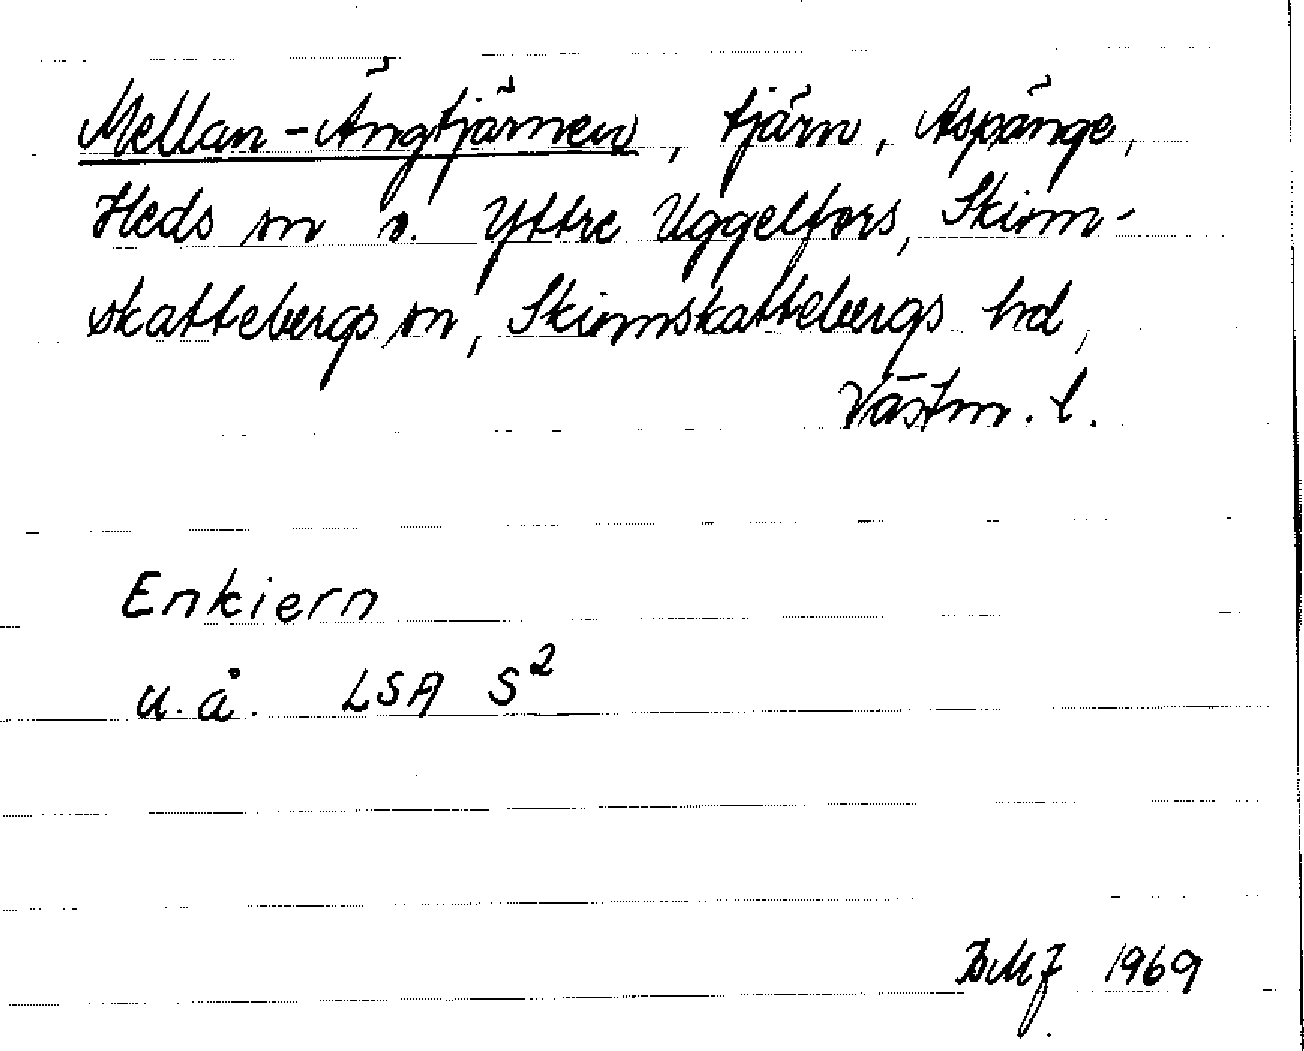 Mellan-Ängtjärnen, tjärn, Aspänge,
Heds sn o. Yttre Uggelfors, Skinn-
skattebergs sn, Skinnskattebergs hd,
Västm. l.
Enkiern
u.å. LSA S²
BMJ 1969